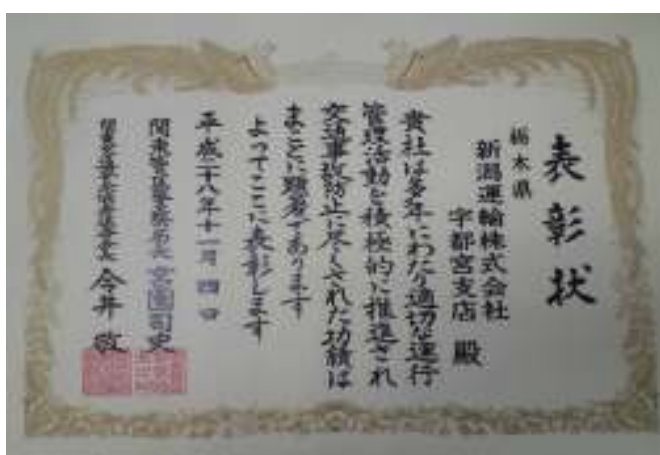 表彰状
栃木県
新潟運輸株式会社
宇都宮支店 殿
貴社は多年にわたり適切な運行
管理活動を積極的に推進され
交通事故防止に尽くされた功績は
まことに顕著であります
よってここに表彰します
平成二十八年十一月四日
関東管区警察局長 宮園司史
今井 敬